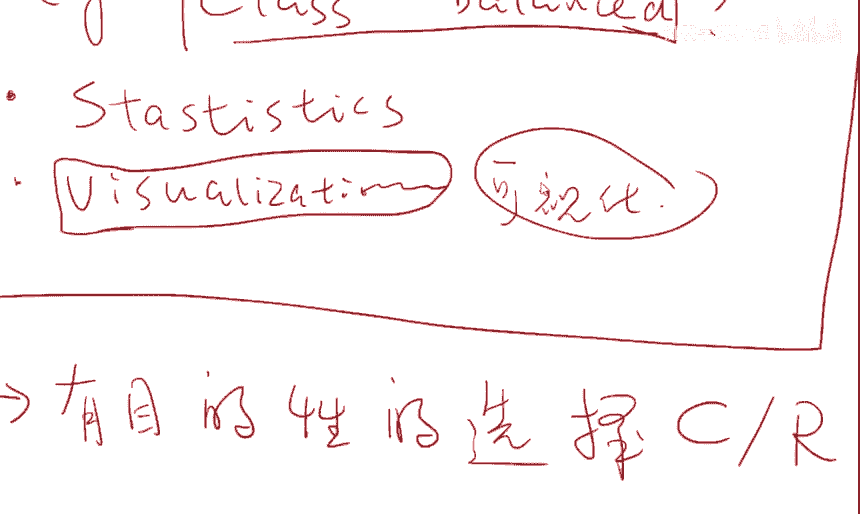 Class Balanced
· Stastistics
· Visualization 可视化.
→ 有目的性的选择 C/R